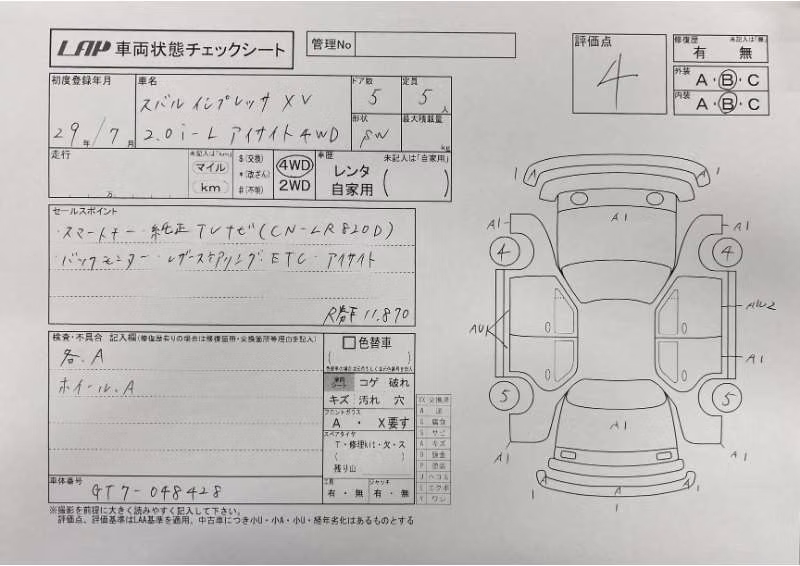 LAP 車両状態チェックシート
管理No
評価点
4
修復歴 未記入は「無」
有 無
外装 A・B・C
内装 A・B・C
初度登録年月
29年/7月
車名
スバル インプレッサ XV
2.0i-L アイサイト 4WD
ドア数
5
定員
5人
形状
SW
最大積載量
kg
走行
万
未記入は「km」
マイル
km
$(交換)
*(改ざん)
#(不明)
4WD
2WD
車歴 未記入は「自家用」
レンタ
自家用
セールスポイント
・スマートキー・純正TVナビ(CN-LR820D)
・バックモニター・レザーステアリング・ETC・アイサイト
R券 11,870
検査・不具合 記入欄(修復歴有りの場合は修復箇所・交換箇所等理由を記入)
各.A
ホイール.A
色替車
車内シート
コゲ 破れ
キズ 汚れ 穴
フロントガラス
A ・ X要す
スペアタイヤ
T・修理kit・欠・ス
残り山
工具
有・無
ジャッキ
有・無
車体番号
GT7-048428
※撮影を前提に大きく読みやすく記入して下さい。
評価点、評価基準はLAA基準を適用。中古車につき小U・小A・小U・経年劣化はあるものとする
1 A A 1
A1
A1 A1
4 4
AU2
A1
5 5
A1
A1 A1
1 A A A 1
1